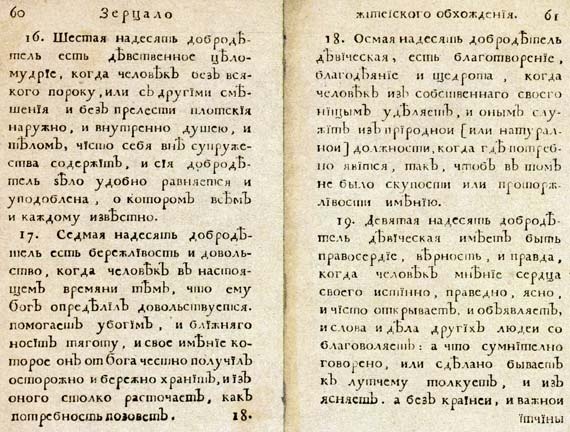 60 Зерцало
16. Шестая надесять добродѣ-
тель есть дѣвственное цѣло-
мудрїе, когда человѣкъ безъ вся-
кого пороку, или съ другїми смѣ-
шенїя и безъ прелести плотскїя
наружно, и внутренно душею, и
тѣломъ, чїсто себя внѣ супруже-
ства содержїтъ, и сїя добродѣ-
тель ѕѣло удобно равняется и
уподоблена, о которомъ всѣмъ
и каждому извѣстно.
17. Седмая надесять добродѣ-
тель есть бережлївость и доволь-
ство, когда человѣкъ въ настоя-
щемъ времяни тѣмъ, что ему
богъ опредѣлїлъ довольствуется.
помогаетъ убогїмъ, и блїжняго
носїтъ тяготу, и свое имѣнїе ко-
торое онъ от бога честно получїлъ
осторожно и бережно хранїтъ, и їзъ
оного столко расточаетъ, какъ
потребность позоветъ. 18.
жїтеїского обхожденїя. 61
18. Осмая надесять добродѣтель
дѣвїческая, есть благотворенїе,
благодѣянїе и щедрота, когда
человѣкъ изъ собственнаго своего
нїщымъ удѣляетъ, и онымъ слу-
жїтъ изъ прїроднои [или натурал-
нои] должности, когда гдѣ потреб-
но явїтся, такъ, чтобъ въ томъ
не было скупости или проторж-
лївости имѣнїю.
19. Девятая надесять добродѣ-
тель дѣвїческая имѣетъ быть
правосердїе, вѣрность, и правда,
когда человѣкъ мнѣнїе сердца
своего истїнно, праведно, ясно,
и чїсто открываетъ, и объявляетъ,
и слова и дѣла другїхъ людеи со
благоволяетъ: а что сумнїтелно
говорено, или сдѣлано бываетъ
къ лутчему толкуетъ, и изъ
ясняетъ. а безъ країнеи, и важнои
їтчїны